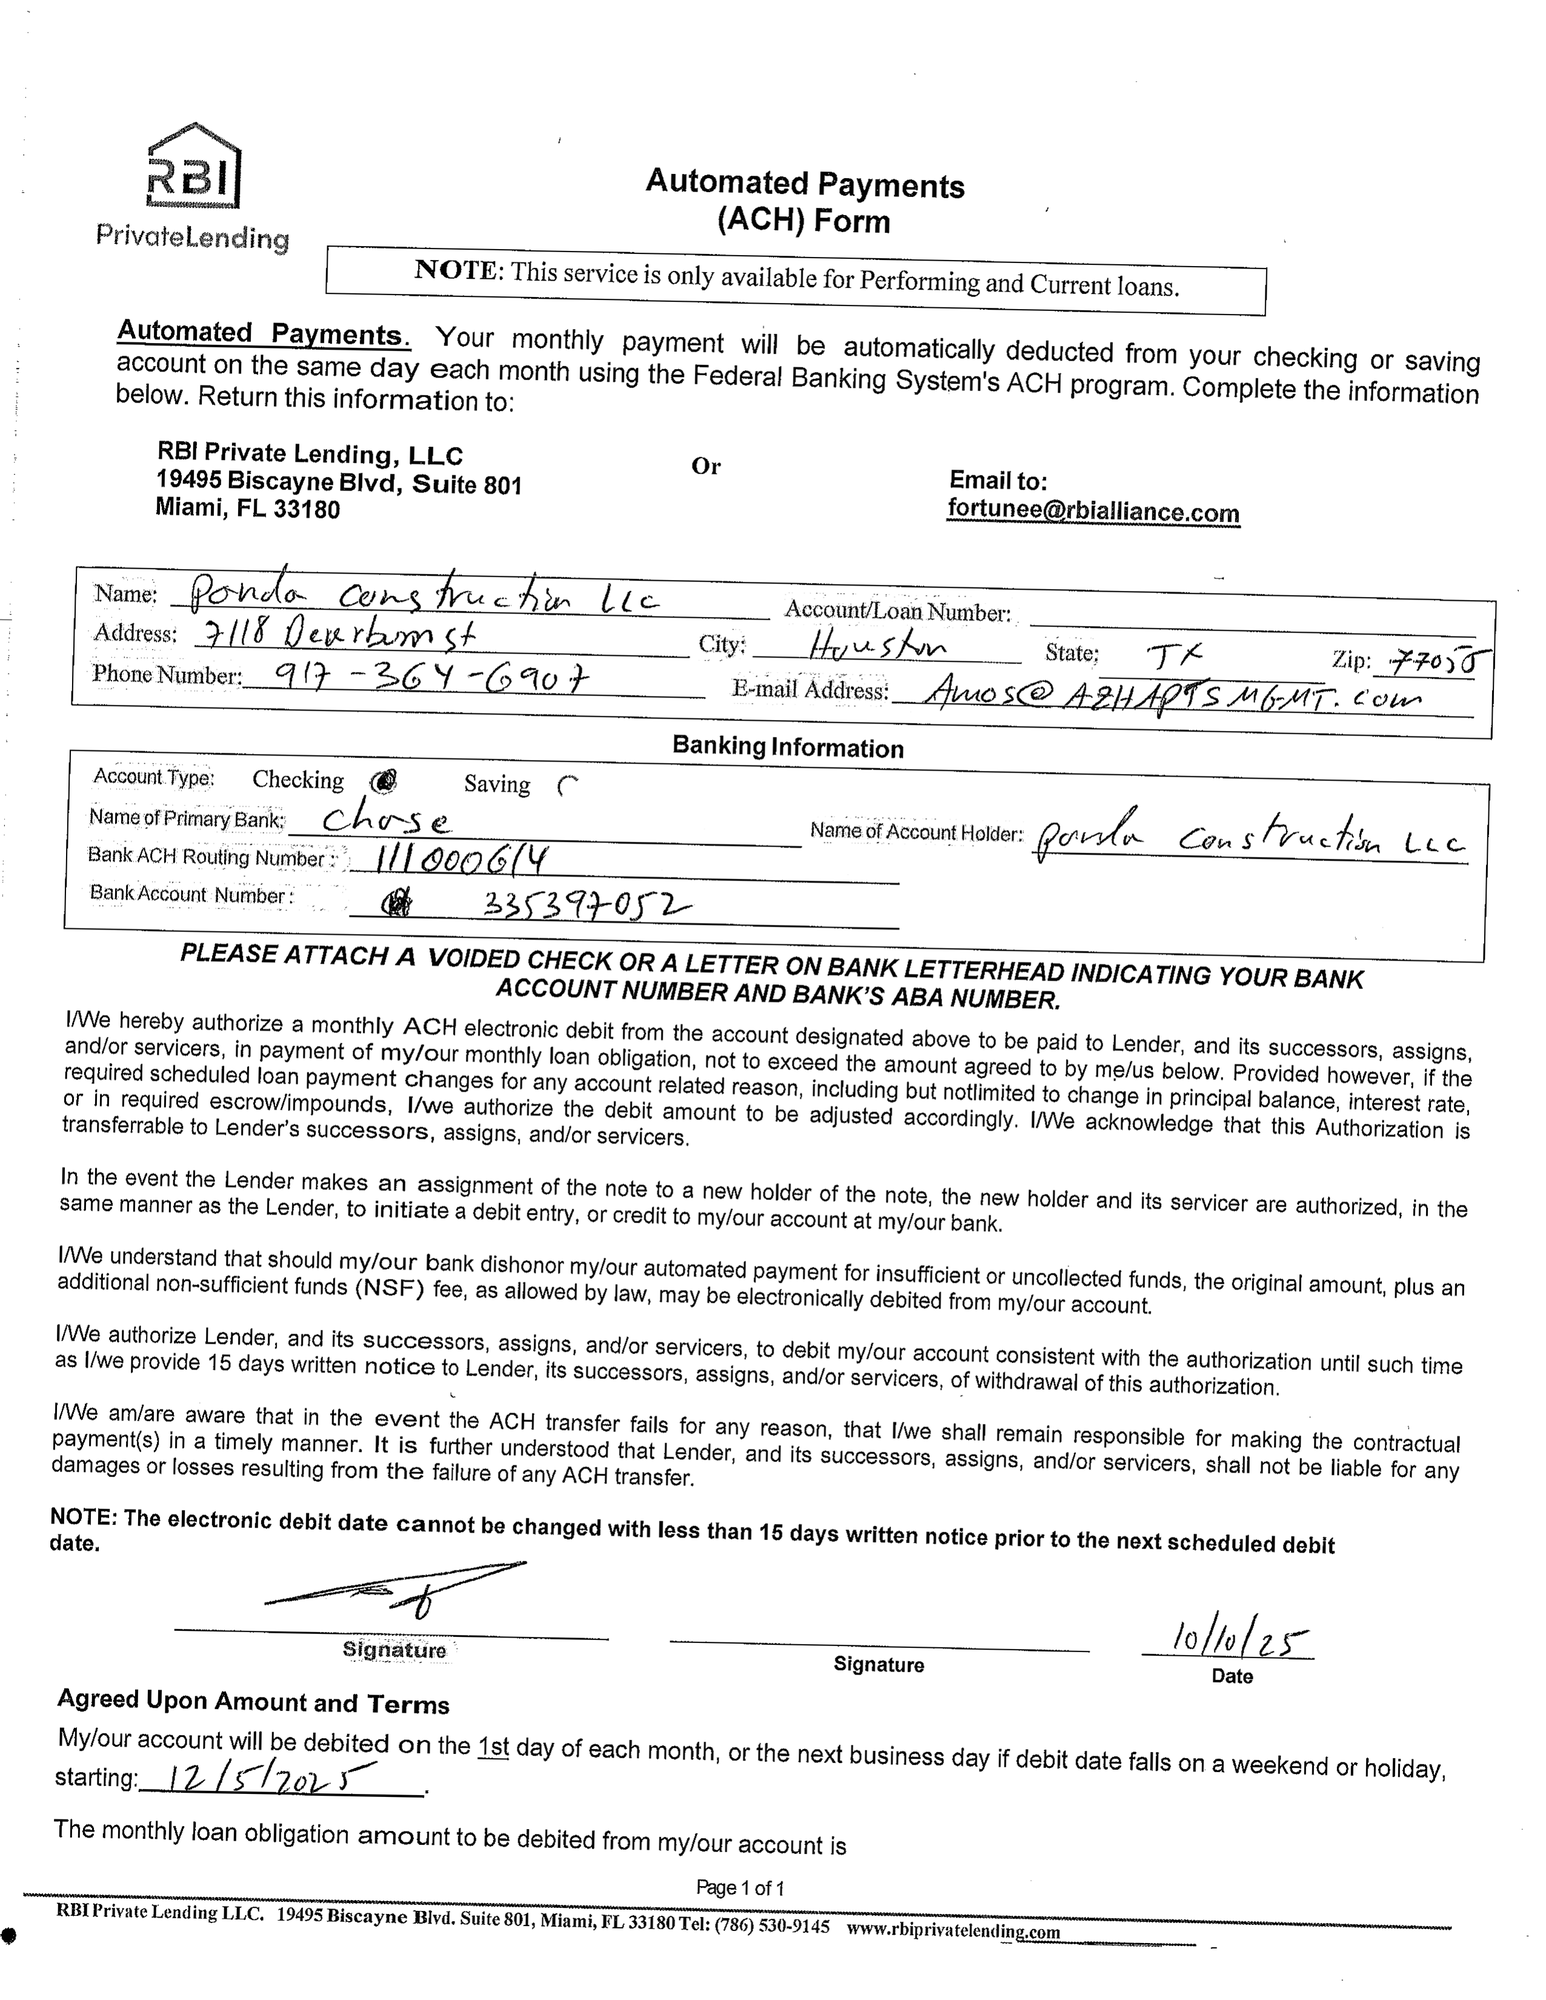 RBI
PrivateLending
Automated Payments
(ACH) Form
NOTE: This service is only available for Performing and Current loans.
Automated Payments. Your monthly payment will be automatically deducted from your checking or saving
account on the same day each month using the Federal Banking System's ACH program. Complete the information
below. Return this information to:
RBI Private Lending, LLC
19495 Biscayne Blvd, Suite 801
Miami, FL 33180
Or
Email to:
fortunee@rbialliance.com
Name: Panda Construction LLC Account/Loan Number:
Address: 7118 St City: Houston State: TX Zip: 77055
Phone Number: 917-364-6907 E-mail Address: Amos@AZHAPTSMGMT.com
Banking Information
Account Type: Checking Saving
Name of Primary Bank: Chase Name of Account Holder: Panda Construction LLC
Bank ACH Routing Number: 111000614
Bank Account Number: 335397052
PLEASE ATTACH A VOIDED CHECK OR A LETTER ON BANK LETTERHEAD INDICATING YOUR BANK
ACCOUNT NUMBER AND BANK'S ABA NUMBER.
I/We hereby authorize a monthly ACH electronic debit from the account designated above to be paid to Lender, and its successors, assigns,
and/or servicers, in payment of my/our monthly loan obligation, not to exceed the amount agreed to by me/us below. Provided however, if the
required scheduled loan payment changes for any account related reason, including but notlimited to change in principal balance, interest rate,
or in required escrow/impounds, I/we authorize the debit amount to be adjusted accordingly. I/We acknowledge that this Authorization is
transferrable to Lender's successors, assigns, and/or servicers.
In the event the Lender makes an assignment of the note to a new holder of the note, the new holder and its servicer are authorized, in the
same manner as the Lender, to initiate a debit entry, or credit to my/our account at my/our bank.
I/We understand that should my/our bank dishonor my/our automated payment for insufficient or uncollected funds, the original amount, plus an
additional non-sufficient funds (NSF) fee, as allowed by law, may be electronically debited from my/our account.
I/We authorize Lender, and its successors, assigns, and/or servicers, to debit my/our account consistent with the authorization until such time
as I/we provide 15 days written notice to Lender, its successors, assigns, and/or servicers, of withdrawal of this authorization.
I/We am/are aware that in the event the ACH transfer fails for any reason, that I/we shall remain responsible for making the contractual
payment(s) in a timely manner. It is further understood that Lender, and its successors, assigns, and/or servicers, shall not be liable for any
damages or losses resulting from the failure of any ACH transfer.
NOTE: The electronic debit date cannot be changed with less than 15 days written notice prior to the next scheduled debit
date.
10/10/25
Signature Signature Date
Agreed Upon Amount and Terms
My/our account will be debited on the 1st day of each month, or the next business day if debit date falls on a weekend or holiday,
starting: 12/5/2025.
The monthly loan obligation amount to be debited from my/our account is
Page 1 of 1
RBI Private Lending LLC. 19495 Biscayne Blvd. Suite 801, Miami, FL 33180 Tel: (786) 530-9145 www.rbiprivatelending.com